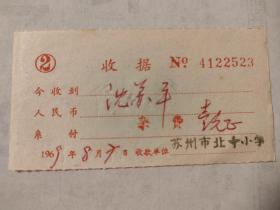 ② 收据 № 4122523
今收到 沈英平
人民币 杂费 壹元正
系付
1969年8月 日 收款单位 苏州市北寺小学